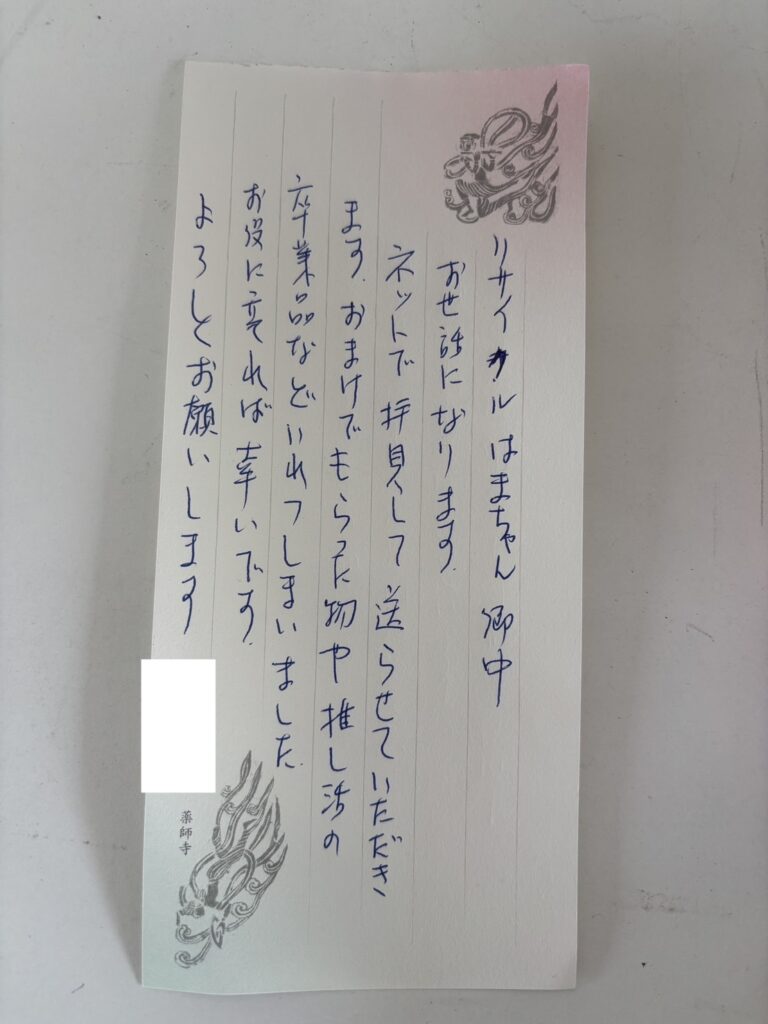 リサイクル はまちゃん 御中
お世話になります。
ネットで拝見して送らせていただき
ます。おまけでもらった物や推し活の
卒業品などいれてしまいました。
お役に立てれば幸いです。
よろしくお願いします
薬師寺